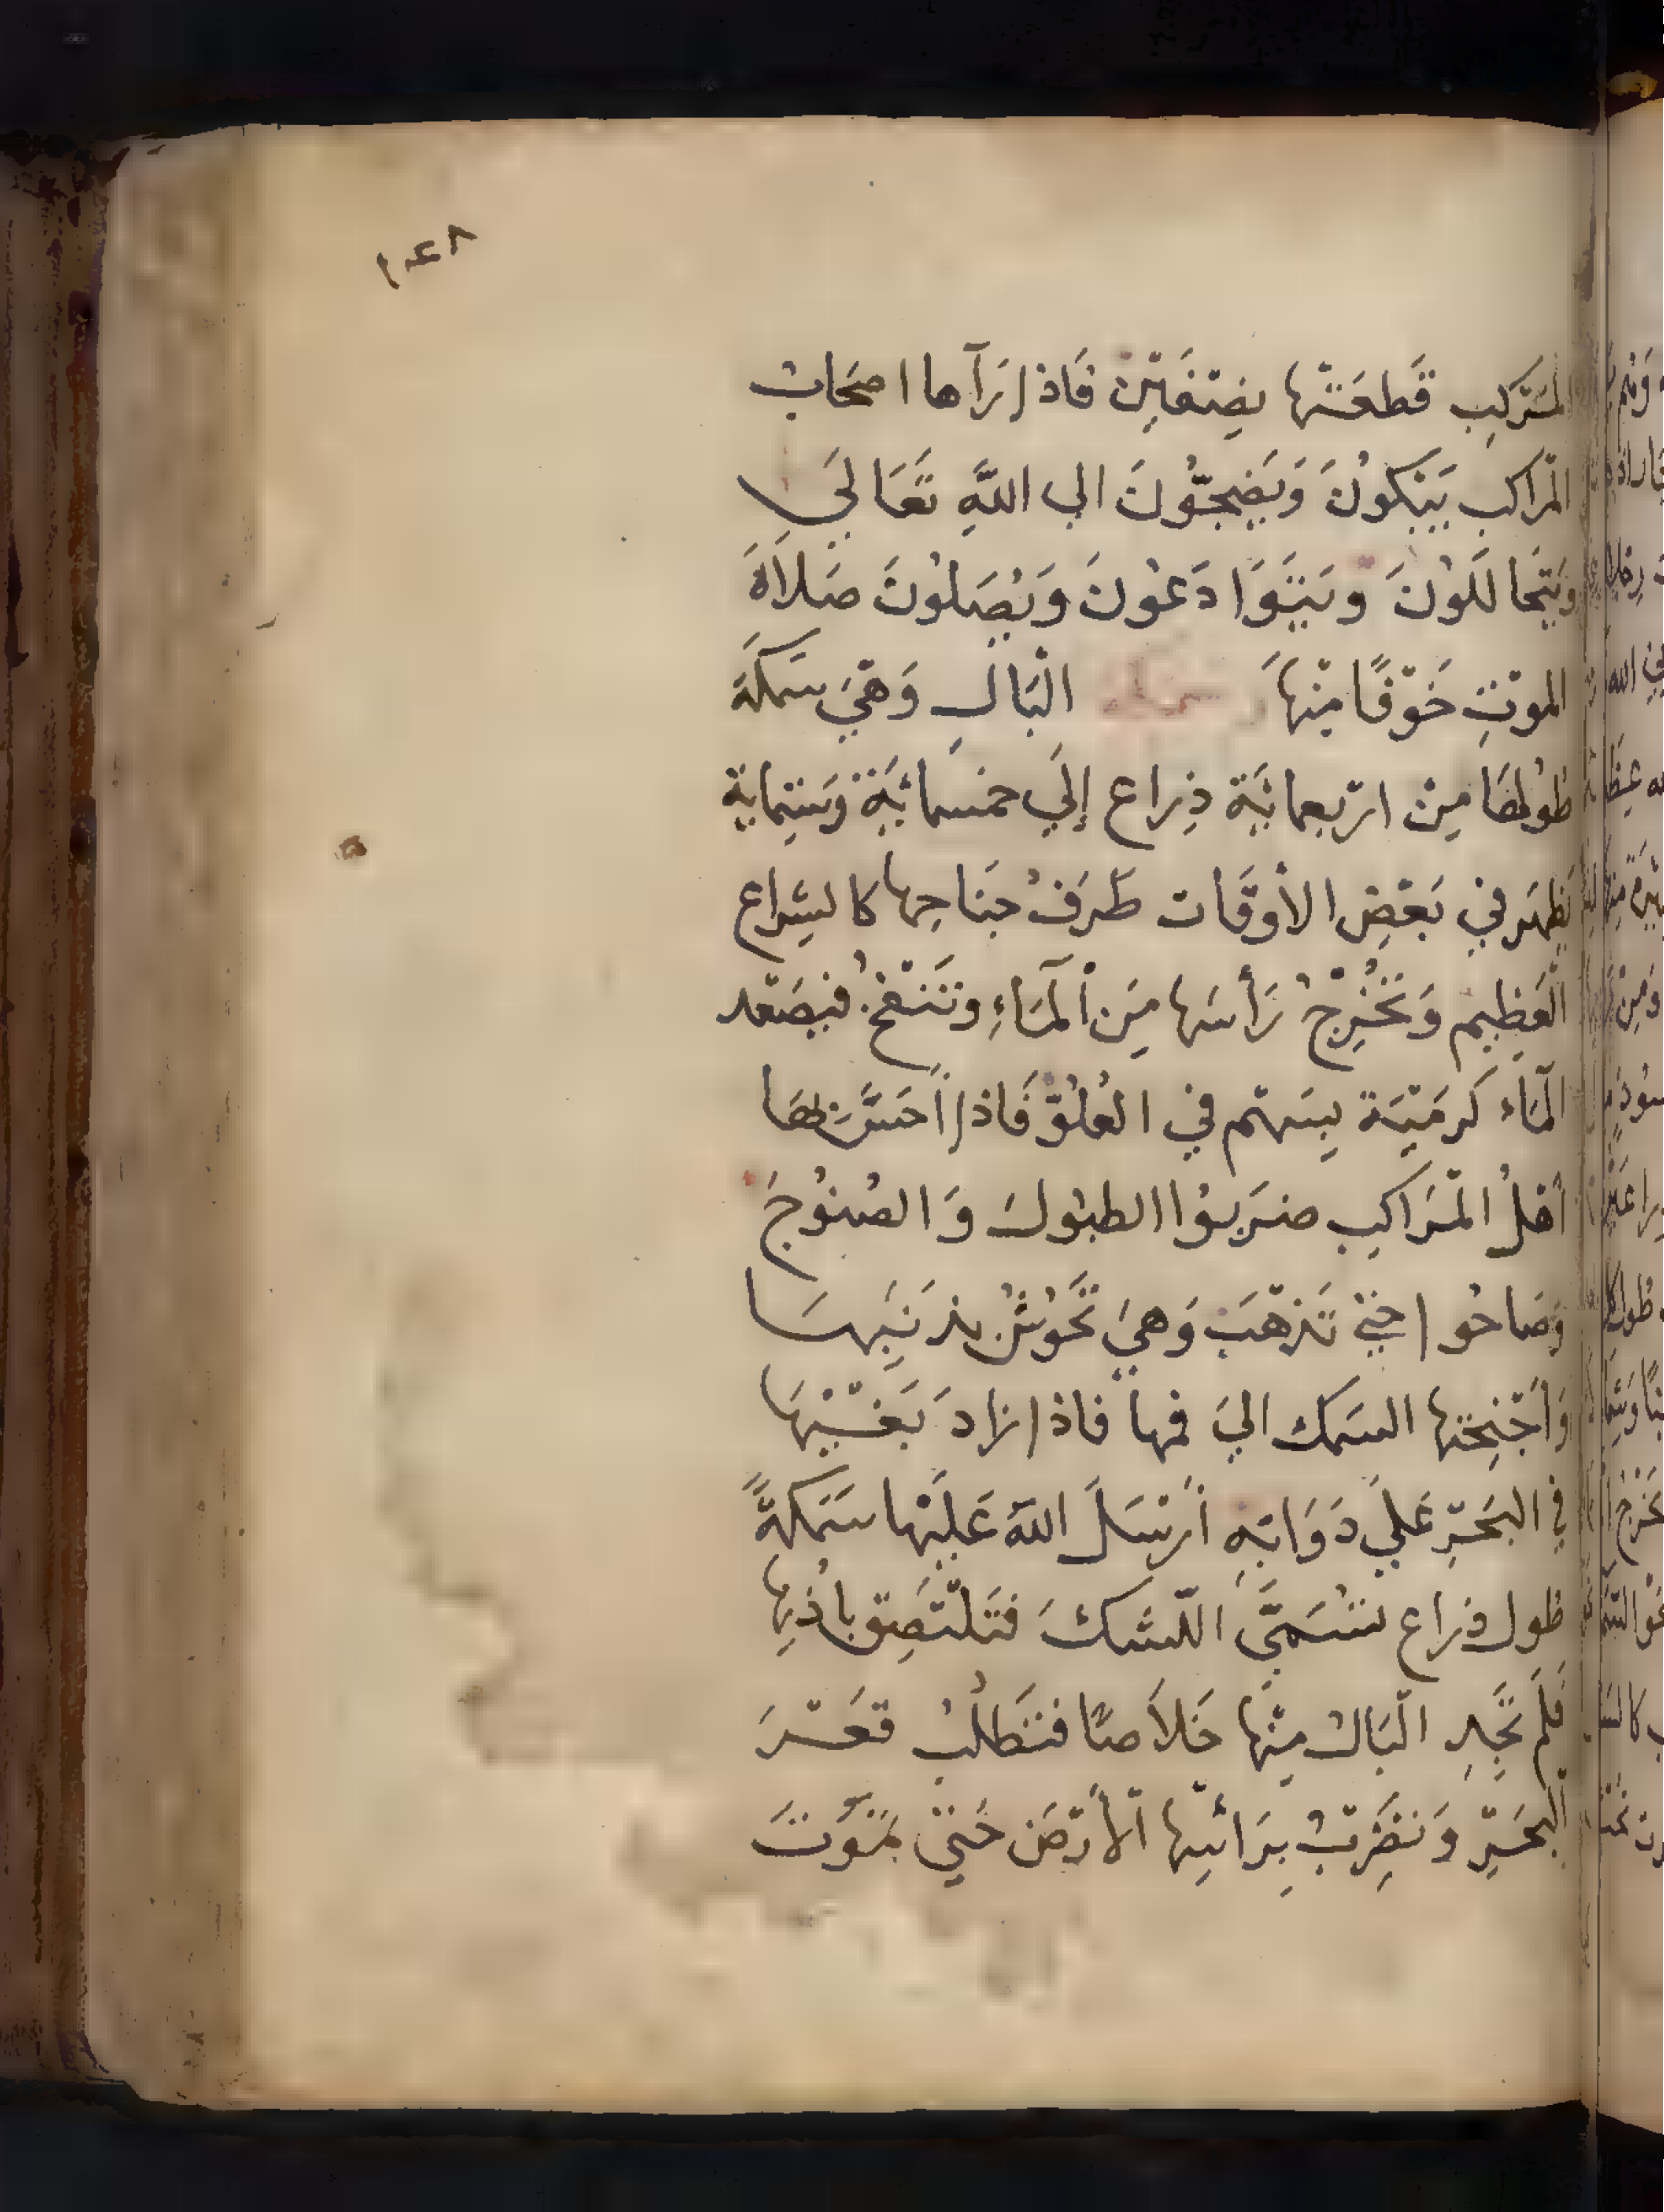 ١٤٨
المَرْكِبِ قَطَعَتْها نِصْفَيْنِ فَاذا رَآها اصحَابُ
المْراكب يَبْكُونَ وَيَضِجُّونَ الي اللَّهِ تَعَالَي
وَيَتَحَالَلُونَ وَيَتَوَادَعُونَ وَيُصَلُونَ صَلَاةَ
الموْتِ خَوْفًا مِنْهَا سمكة الْبَالِ وَهْيَ سَمَكَة
طُولُهَا مِنْ ارْبعمائَة ذِراع إلَي خمسمائَةِ وَستماية
يَظهَر في بَعْضِ الأوْقَات طَرَفُ جَناحِها كالشِراع
الْعَظِيم وَتَخْرُجُ رَأسَها مِنَ الْمَاءِ وتَنْفخُ فيصَعد
الْمَاء كَرمَيَة بِسَهْم في العُلُوّ فَاذا أَحَسَّ بِهَا
أهْلُ الْمَرَاكِبِ ضَرَبُوا الطبُولَ وَالصُنُوجَ
وَصَاحُوا حَتي تَذْهَبَ وَهيَ تَحُوشُ بذَنَبِهَا
وَأجْنِحَتِها السَمك اليَ فمها فاذا زادَ بَغْيُهَا
في البَحْرِ عَلي دَوَابِهِ أَرْسَلَ اللهَ عَلَيْها سَمَكَةً
طول ذراع تُسَمَّي اللّشكَ فَتَلْتَصِق بِأُذنِها
فَلَمْ تَجِدِ الْبَالُ مِنْها خَلَاصًا فتَطلُبُ قَعْرَ
الْبَحْرِ وَتَضْرِبُ بِرَائسِها الْأَرْضَ حَتيْ تَمُوتَ